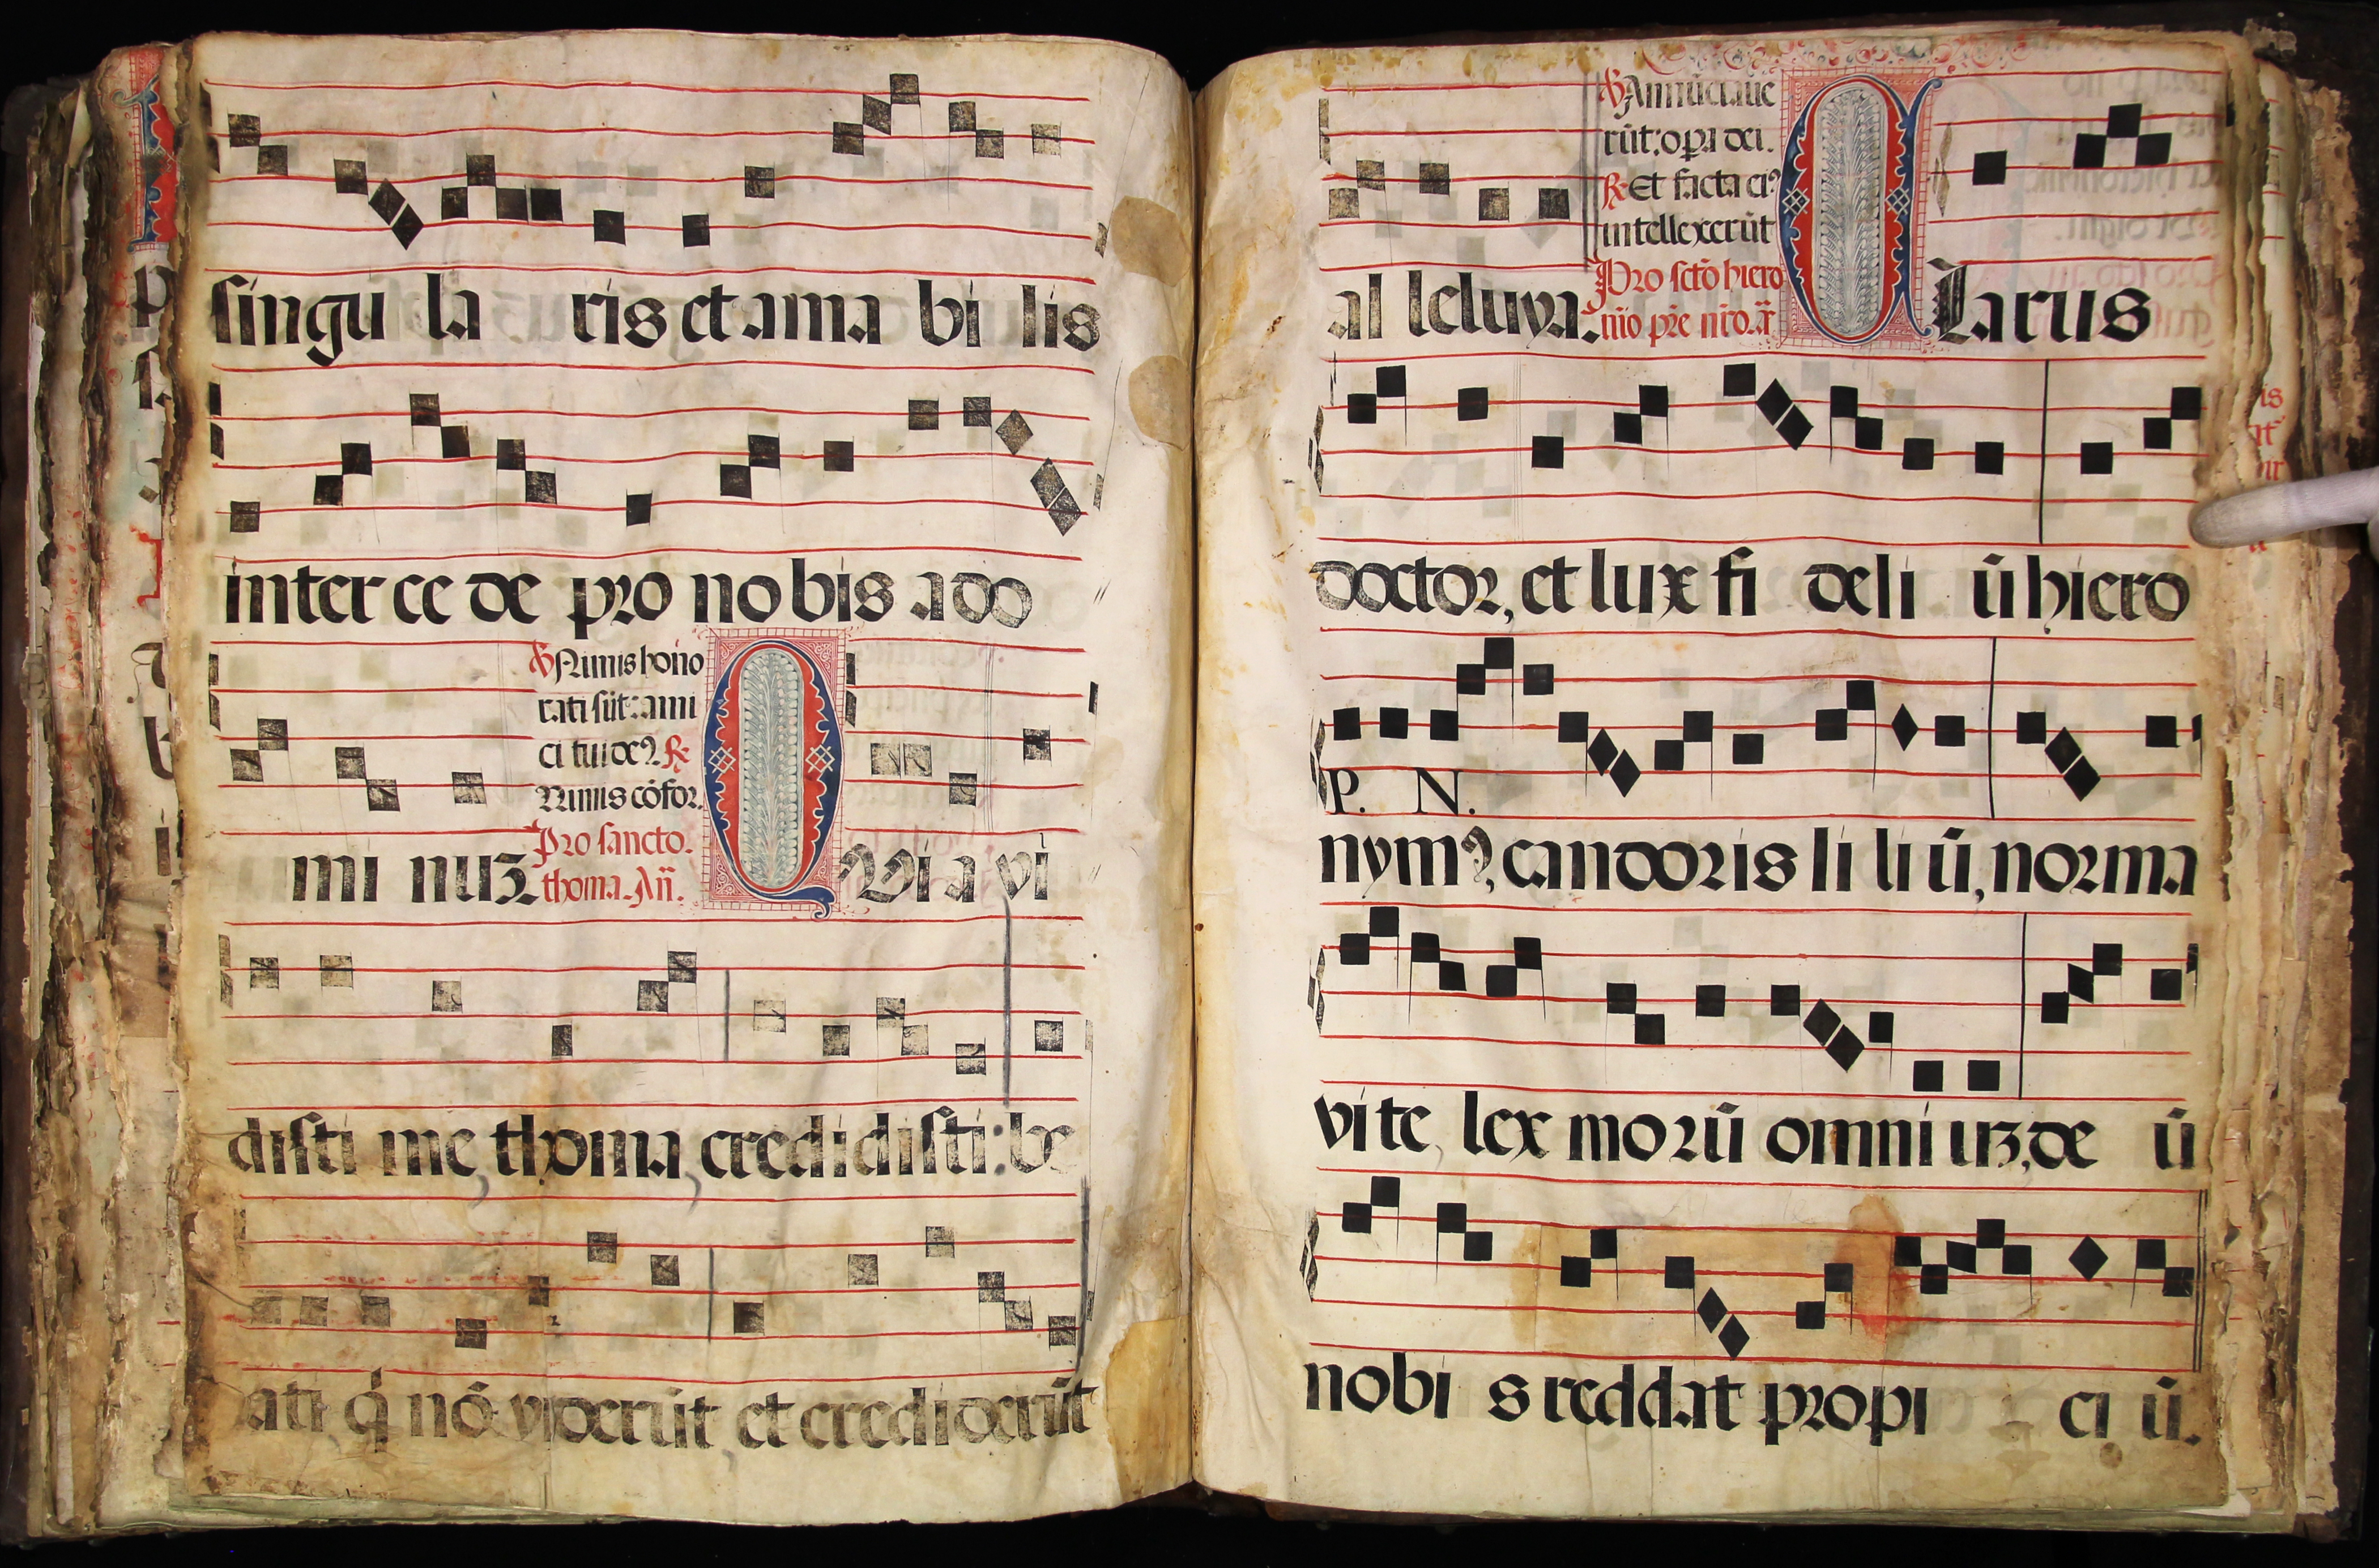 singu la ris et ama bi lis
inter ce de pro no bis a do
℣ Nimis hono
rati sūt: ami
ci tui de⁹. ℟
Nimis cōfor.
mi nuʒ.
Pro sancto.
thoma. Añ.
Q Vi a vi
disti me, thoma, credidisti: be
ati q̇ nō viderūt, et crediderūt
℣ Annūciaue
rūt: opa dei.
℟ Et facta ei⁹
intellexerūt
al leluya.
Pro scto hiero
nio pre nro. a
C Larus
doctor, et lux fi deli ū hiero
P. N.
nym⁹, candoris li li ū, norma
vi te, lex morū omni uʒ, de ū
nobi s reddat propi ci ū.